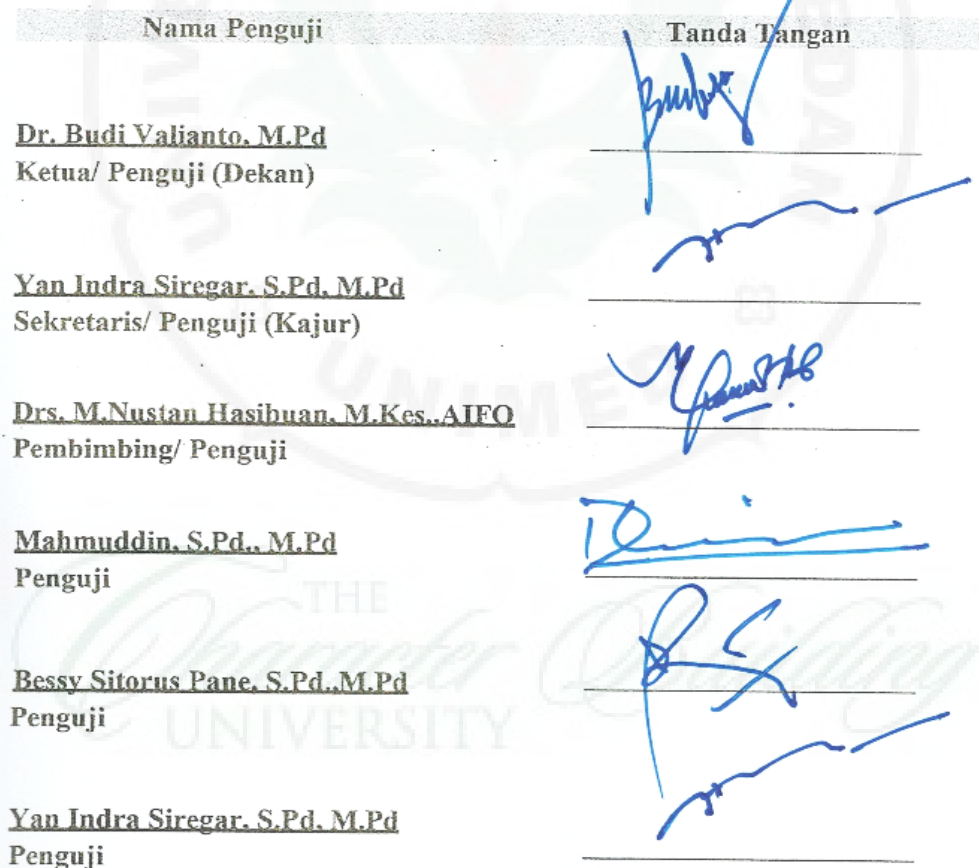 Nama Penguji Tanda Tangan
Dr. Budi Valianto, M.Pd
Ketua/ Penguji (Dekan)
Yan Indra Siregar. S.Pd. M.Pd
Sekretaris/ Penguji (Kajur)
Drs. M.Nustan Hasibuan, M.Kes.,AIFO
Pembimbing/ Penguji
Mahmuddin, S.Pd., M.Pd
Penguji
Bessy Sitorus Pane, S.Pd.,M.Pd
Penguji
Yan Indra Siregar. S.Pd. M.Pd
Penguji
UNIMED
THE
Character Building
UNIVERSITY